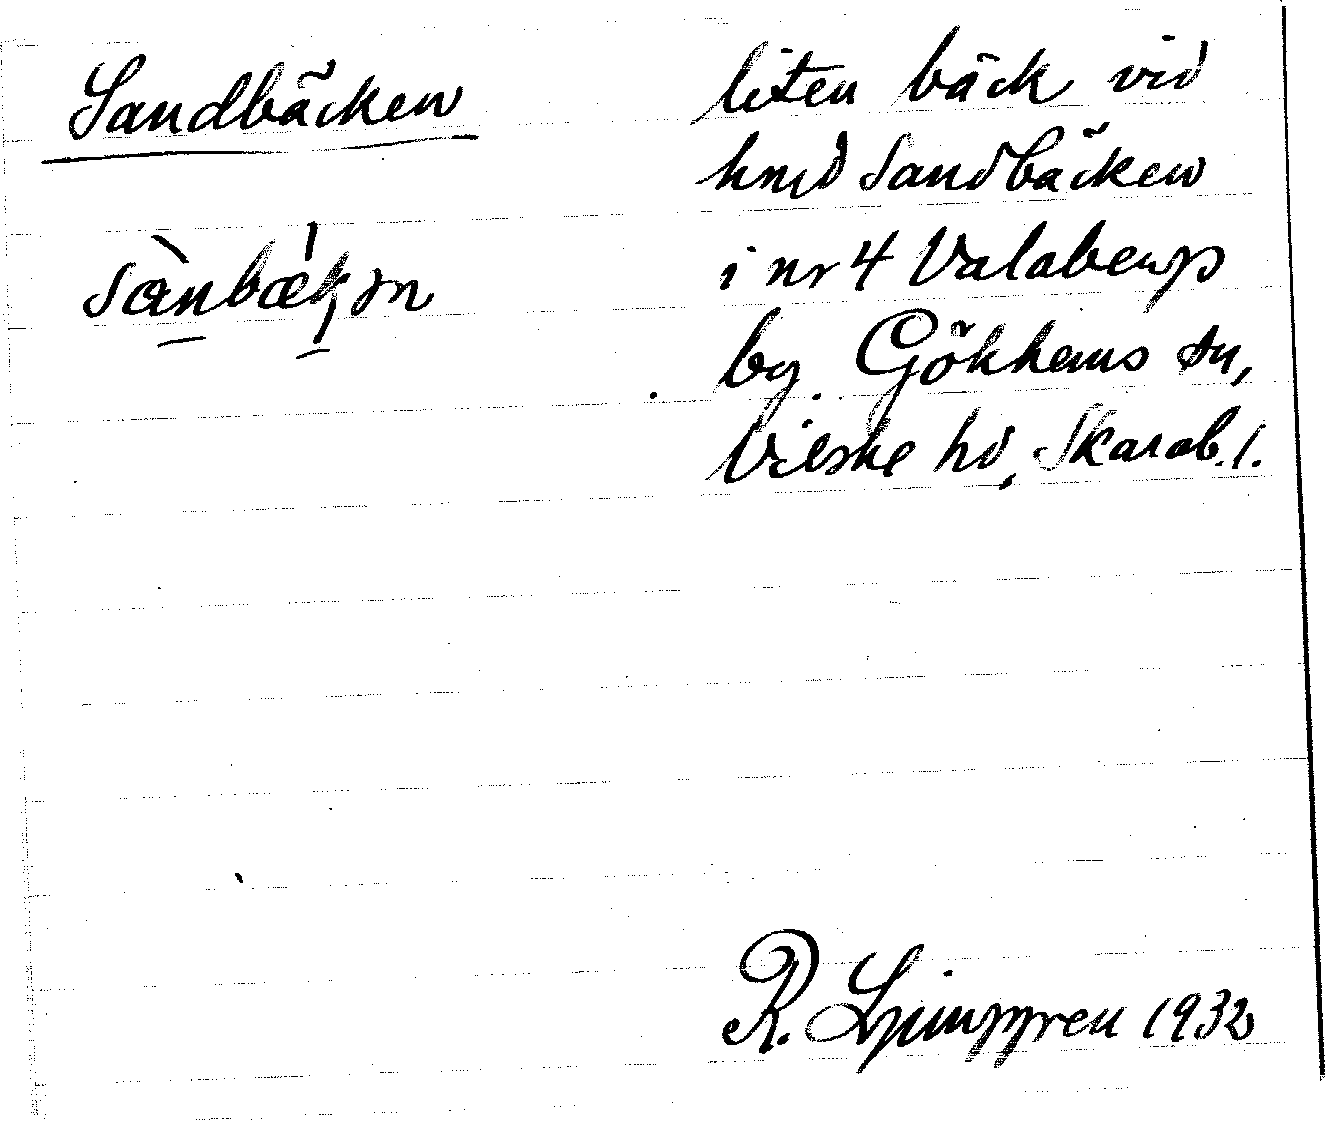 Sandbäcken
liten bäck vid
hmd Sandbäcken
i nr 4 Valabergs
by Gökhems sn,
Vilske hd, Skarab. l.
R. Ljunggren 1932